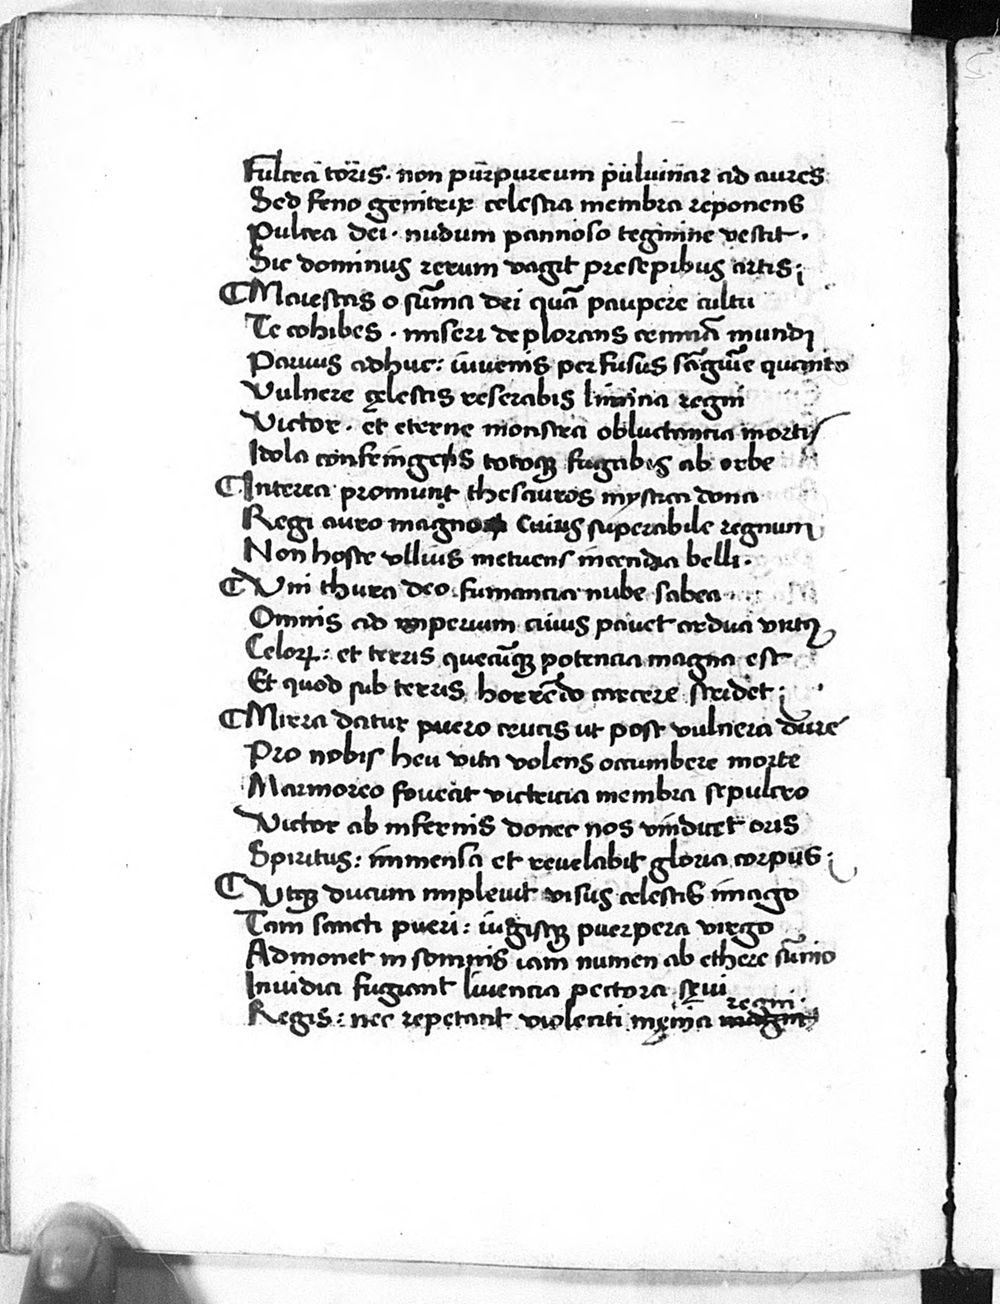 Fulcra toris. non purpureum puluinar ad aures
Sed feno genitrix celestia membra reponens
Pulcra dei. nudum pannoso tegmine vestit.
Sic dominus rerum vagit presepibus artis;
¶ Maiestas o sūma dei quā paupere cultu
Te cohibes. miseri deplorans crimīa mundi
Paruus adhuc: iuuenis perfusus sāguīe quinto
Vulnere cęlestis reserabis limina regni
Victor. et eterne monstra obluctancia mortis
Idola confringens totoqꝫ fugabis ab orbe
¶ Interea promunt thesauros mystica dona
Regi auro magno Cuius superabile regnum
Non hoste vllius metuens incendia belli.
¶ Vni thura deo fumancia nube sabea
Omnis ad imperium cuius pauet ardua virtꝰ
Celoꝝ: et terris quecūqꝫ potencia magna est
Et quod sub terris horrēdo carcere stridet;
¶ Mirra datur puero crucis ut post vulnera dure
Pro nobis heu vita volens occumbere morte
Marmoreo foueat victricia membra sepulcro
Victor ab infernis donec nos vindicet oris
Spiritus: immensa et reuelabit gloria corpus;
¶ Vtqꝫ ducum impleuit visus celestis imago
Tam sancti pueri: iugisqꝫ puerpera virgo
Admonet in somnis iam numen ab ethere sūmo
Inuidia fugiant liuencia pectora sęui
Regis: nec repetant violenti męnia regni.